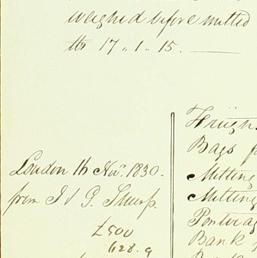 weighed before melted
17 " 1 - 15.
London 16 Nov. 1830.
from I & G. Sharp.
£500
628. 9
Weigh
Bags f
Melting
Melting
Porterag
Bank
Bank